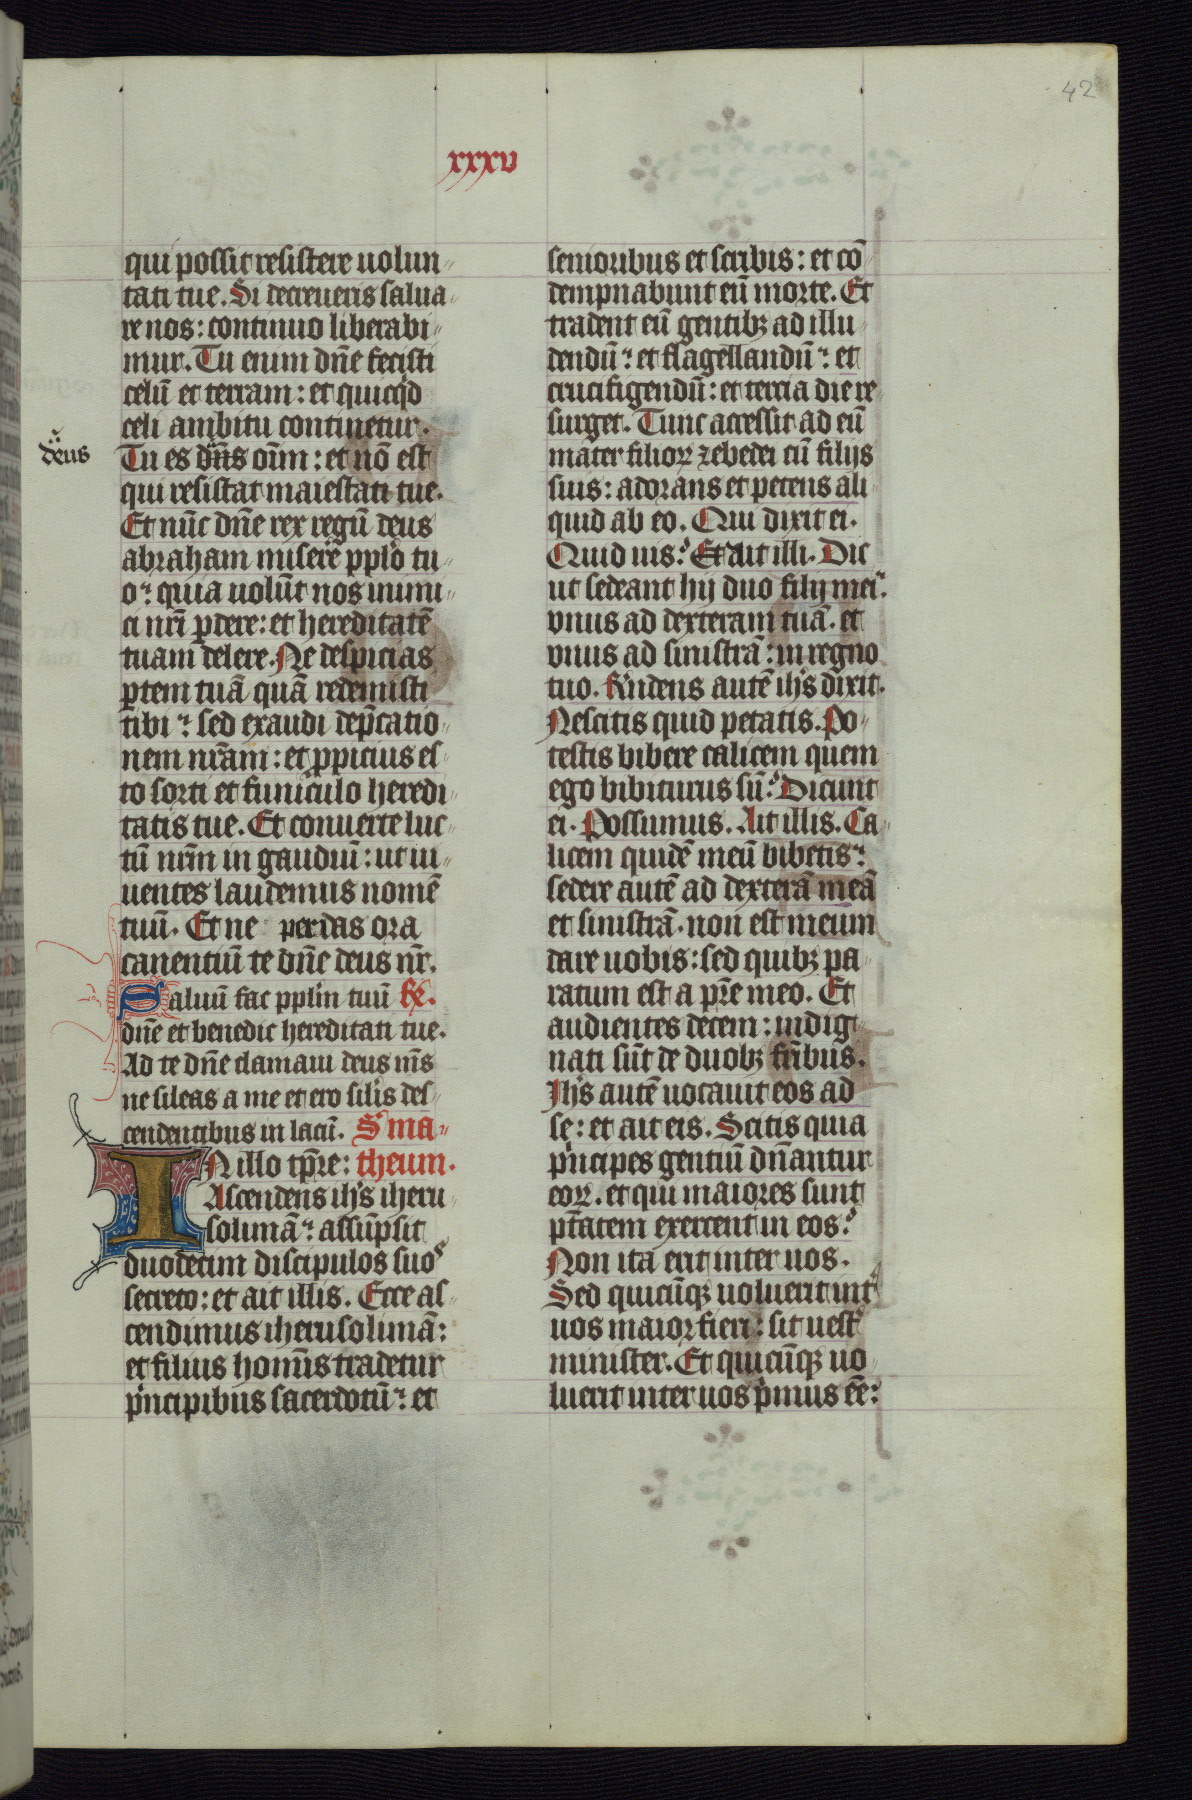 42
xxxv
qui possit resistere uolun
tati tue. Si decreueris salua
re nos: continuo liberabi
mur. Tu enim dn̄e fecisti
celū et terram: et quicqͥd
celi ambitu continetur.
deus
Tu es dn̄s oīm: et nō est
qui resistat maiestati tue.
Et nūc dn̄e rex regū deus
abraham miserē pplo tu
o: quia uolūt nos inimi
ci nr̄i ꝑdere: et hereditatē
tuam delere. Ne despicias
ꝑtem tuā quā redemisti
tibi: sed exaudi dep̄catio
nem nr̄am: et ꝓpicius es
to sorti et funiculo heredi
tatis tue. Et conuerte luc
tū nr̄m in gaudiū: ut ui
uentes laudemus nomē
tuū. Et ne perdas ora
canentiū te dn̄e deus nr̄.
Saluū fac pplm̄ tuū
dn̄e et benedic hereditati tue.
Ad te dn̄e clamaui deus m̄s
ne sileas a me et ero silis des
cendentibus in lacū. Sͫ ma
IN illo tp̄re: theum.
Ascendens ihs̄ iheru
solimā: assūpsit
duodecim discipulos suos
secreto: et ait illis. Ecce as
cendimus iherusolimā:
et filius homīs tradetur
pͥncipibus sacerdotū: et
senioribus et scribis: et cō
dempnabunt eū morte. Et
tradent eū gentibꝫ ad illu
dendū: et flagellandū: et
crucifigendū: et tercia die re
surget. Tunc accessit ad eū
mater filioꝝ zebedei cū filijs
suis: adorans et petens ali
quid ab eo. Qui dixit ei.
Quid uis? Et ait illi. Dic
ut sedeant hij duo filij mei:
vnus ad dexteram tuā. et
vnus ad sinistrā: in regno
tuo. Rn̄dens autē ihs̄ dixit.
Nescitis quid petatis. Po
testis bibere calicem quem
ego bibiturus sū? Dicunt
ei. Possumus. Ait illis. Ca
licem quidē meū bibetis:
sedere autē ad dexterā meā
et sinistrā. non est meum
dare uobis: sed quibꝫ pa
ratum est a pr̄e meo. Et
audientes decem: indig
nati sūt de duobꝫ fr̄ibus.
Ihs̄ autē uocauit eos ad
se: et ait eis. Scitis quia
pͥncipes gentiū dn̄antur
eoꝝ. et qui maiores sunt
pt̄atem exercent in eos?
Non ita erit inter uos.
Sed quicūqꝫ uoluerit int
uos maior fieri: sit uest
minister. Et quicūqꝫ uo
luerit inter uos pͥmus eē: